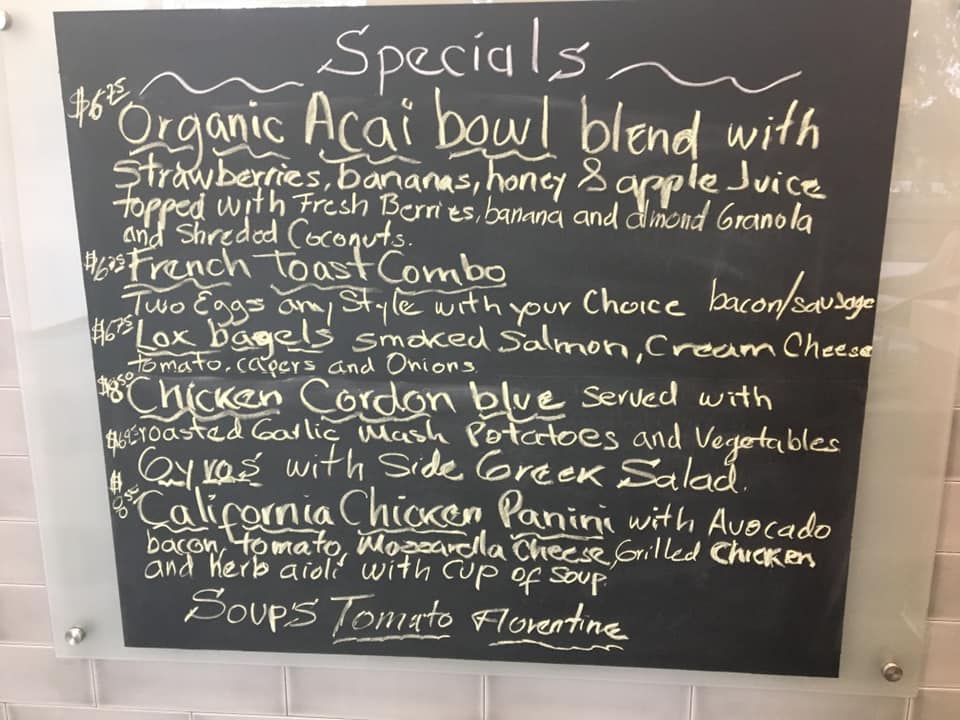 Specials
$6.75 Organic Açai bowl blend with
Strawberries, bananas, honey & apple Juice
topped with Fresh Berries, banana and almond Granola
and Shreded Coconuts.
French Toast Combo
Two Eggs any Style with your Choice bacon/sausage
$6.75 Lox bagels smoked Salmon, Cream Cheese
tomato, capers and Onions
$8.50 Chicken Cordon blue Served with
roasted Garlic Mash Potatoes and Vegetables
Gyros with Side Greek Salad.
$8.50 California Chicken Panini with Avocado
bacon, tomato, Mozzarella Cheese, Grilled Chicken
and herb aioli with cup of soup.
Soups Tomato Florentine